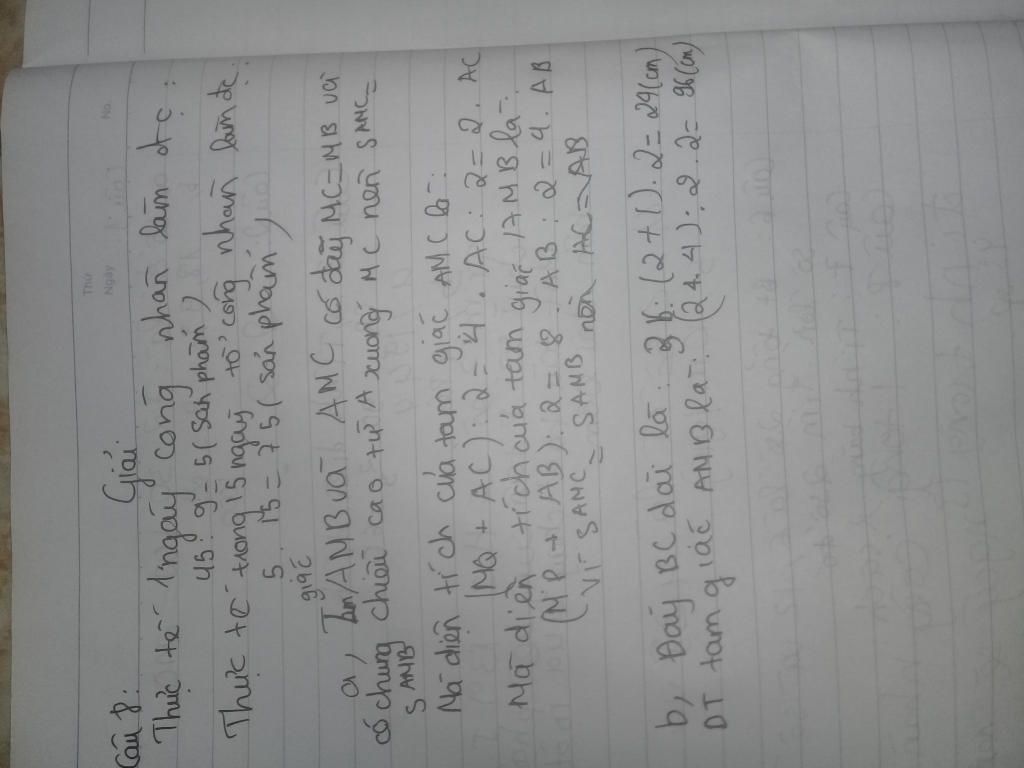 Thứ
Ngày
No.
Giải:
Câu 8:
Thực tế 1 ngày công nhân làm đc:
45 : 9 = 5 (sản phẩm)
Thực tế trong 15 ngày tổ công nhân làm đc:
5 . 15 = 75 (sản phẩm)
giác
a, Tam AMB và AMC có đáy MC = MB và
có chung chiều cao từ A xuống MC nên SAMC =
S AMB
Mà diện tích của tam giác AMC là:
(MQ + AC) : 2 = 4 . AC : 2 = 2 . AC
Mà diện tích của tam giác AMB là:
(MP + AB) : 2 = 8 . AB : 2 = 4 . AB
(Vì SAMC = SAMB nên AC = AB
b, Đáy BC dài là: (2 + 1) . 2 = 24 (cm)
DT tam giác ANB là: (24.4) : 2 . 2 = 96 (cm)